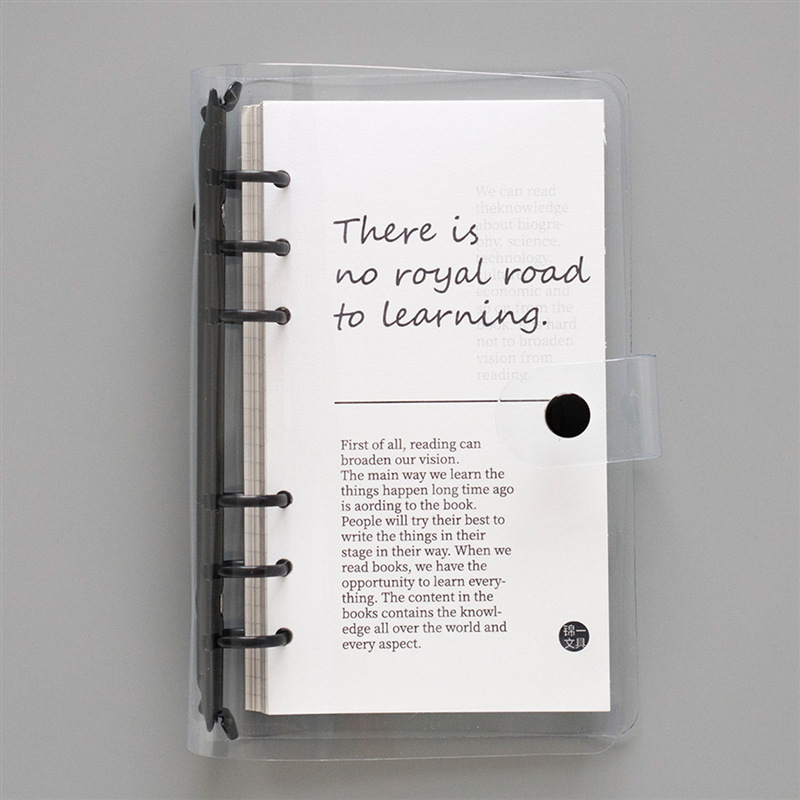 There is
no royal road
to learning.
We can read
theknowledge
about biogra-
phy, science,
technology,
economic and
not to broaden
vision from
reading.
First of all, reading can
broaden our vision.
The main way we learn the
things happen long time ago
is aording to the book.
People will try their best to
write the things in their
stage in their way. When we
read books, we have the
opportunity to learn every-
thing. The content in the
books contains the knowl-
edge all over the world and
every aspect.
锦一
文具